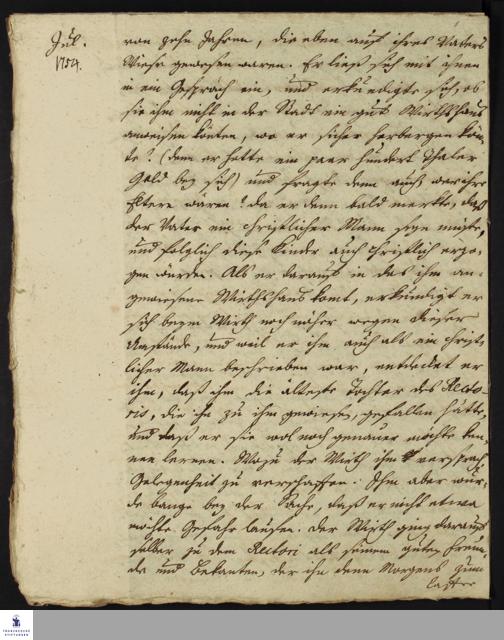 Jul.
1754.
von zehn Jahren, die eben auf ihres Vaters
Wiese gewesen waren. Er ließ sich mit ihnen
in ein Gespräch ein, und erkundigte sich, ob
sie ihm nicht in der Stadt ein gut Wirthshaus
anweisen könten, wo er sicher herbergen kön-
te? (denn er hatte ein paar hundert Thaler
Geld bey sich) und fragte denn auch, wer ihre
Eltern waren? da er denn bald merkte, daß
der Vater ein christlicher Mann seyn müste,
und folglich diese Kinder auch christlich erzo-
gen würden. Als er darauf in das ihm an-
gewiesene Wirthshaus komt, erkundigt er
sich beym Wirth noch näher wegen dieser
Umstände, und weil er ihm auch als ein christ-
licher Mann beschrieben war, entdecket er
ihm, daß ihm die älteste Tochter des Recto-
ris, die ihn zu ihm gewiesen, gefallen hätte,
und daß er sie wol noch genauer möchte ken-
nen lernen. Wozu der Wirth ihm versprach
Gelegenheit zu verschaffen. Ihm aber wur-
de bange bey der Sache, daß er nicht etwa
möchte Gefahr laufen. Der Wirth ging darauf
selber zu dem Rectori als seinem guten Freun-
de und Bekanten, der ihn denn Morgens zum
FRANCKESCHE
STIFTUNGEN